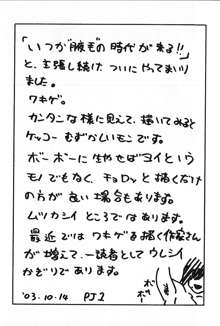 「いつか腋毛の時代が来る!!」
と、主張し続け ついにやってまいり
ました。
ワキゲ。
カンタンな様に見えて、描いてみると
ケッコー むずかしいモンです。
ボーボーに生やせばヨイという
モノでもなく、チョロッと描くだけ
の方が良い場合もあります。
ムツカシイ ところではあります。
最近ではワキゲを描く作家さん
が増えて、一読者としてウレシイ
かぎりであります。
ボボー
'03.10.14 PJ1